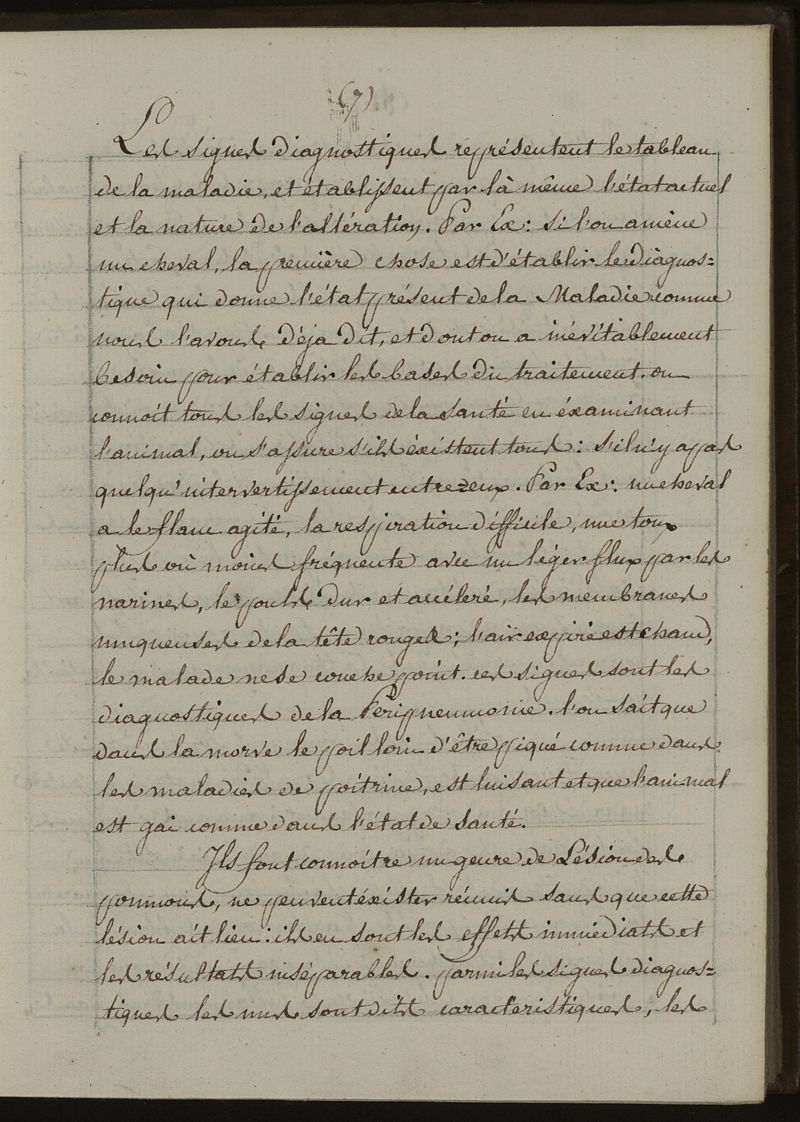 (7)
Les signes diagnostiques représentent le tableau
de la maladie, et établissent par là même l'état actuel
et la nature de l'altération. Par Ex: si l'on amène
un cheval, la première chose est d'établir le diagnos=
tique qui donne l'état présent de la Maladie comme
nous l'avons déja dit, et dont on a inévitablement
besoin pour établir les bases du traitement. on
connoit tous les signes de la santé en éxaminant
l'animal, on s'assure s'ils éxistent tous: s'il n'y a pas
quelqu'intervertissement entrezeux. Par Ex: un cheval
a le flanc agité, la respiration difficile, une toux
plus où moins fréquente avec un léger flux par les
narines, le pouls dur et accéleré, les membranes
muqueuses de la tête rouges; l'air expiré est chaud,
le malade ne se couche point. ces signes sont les
diagnostiques de la Péripneumonie. l'on sait que
dans la morve le poil loin d'être piqué comme dans
les maladies de poitrine, est luisant et que l'animal
est gai comme dans l'état de santé.
Ils font connoitre un genre de Lésion des
poumons, ne peuvent éxister réunis sans que cette
lésion ait lieu: ils en sont les effets immédiats et
les résultats inséparables. parmi les signes diagnos=
tiques les uns sont dits caractéristiques, les